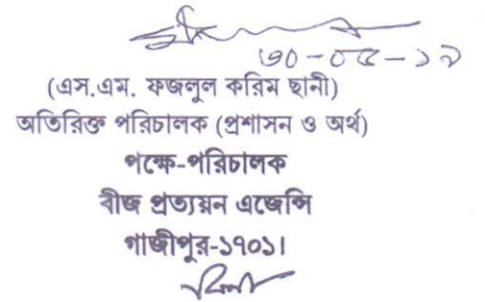 ৩০-০৫-১৯
(এস.এম. ফজলুল করিম ছানী)
অতিরিক্ত পরিচালক (প্রশাসন ও অর্থ)
পক্ষে-পরিচালক
বীজ প্রত্যয়ন এজেন্সি
গাজীপুর-১৭০১।